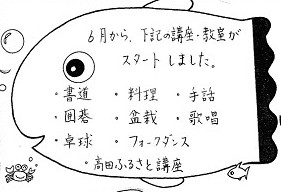 6月から、下記の講座・教室が
スタートしました。
・書道 ・料理 ・手話
・囲碁 ・盆栽 ・歌唱
・卓球 ・フォークダンス
・高田ふるさと講座